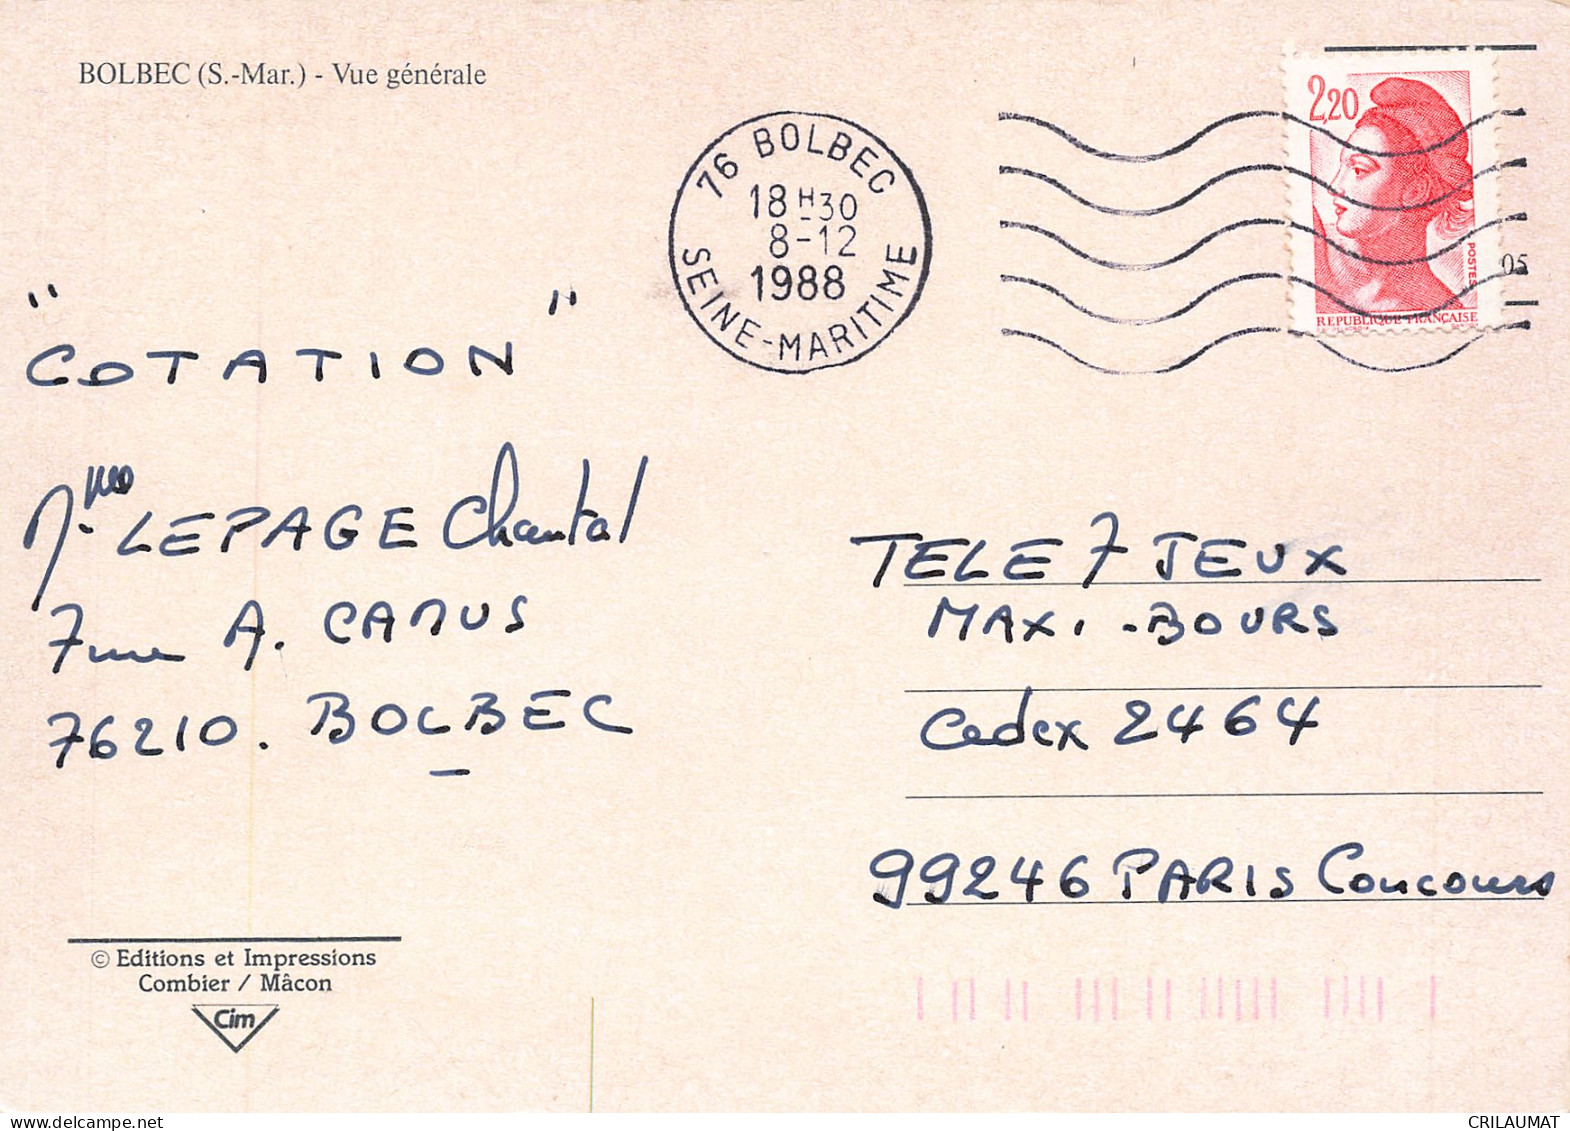 BOLBEC (S.-Mar.) - Vue générale
76 BOLBEC
18 H 30
8-12
1988
SEINE-MARITIME
2,20
POSTES
REPUBLIQUE FRANÇAISE
05
" COTATION "
Mme LEPAGE Chantal
7 rue A. CAMUS
76210. BOLBEC
TELE 7 JEUX
MAXI-BOURS
Cedex 2464
99246 PARIS Concours
© Editions et Impressions
Combier / Mâcon
Cim
delcampe.net
CRILAUMAT